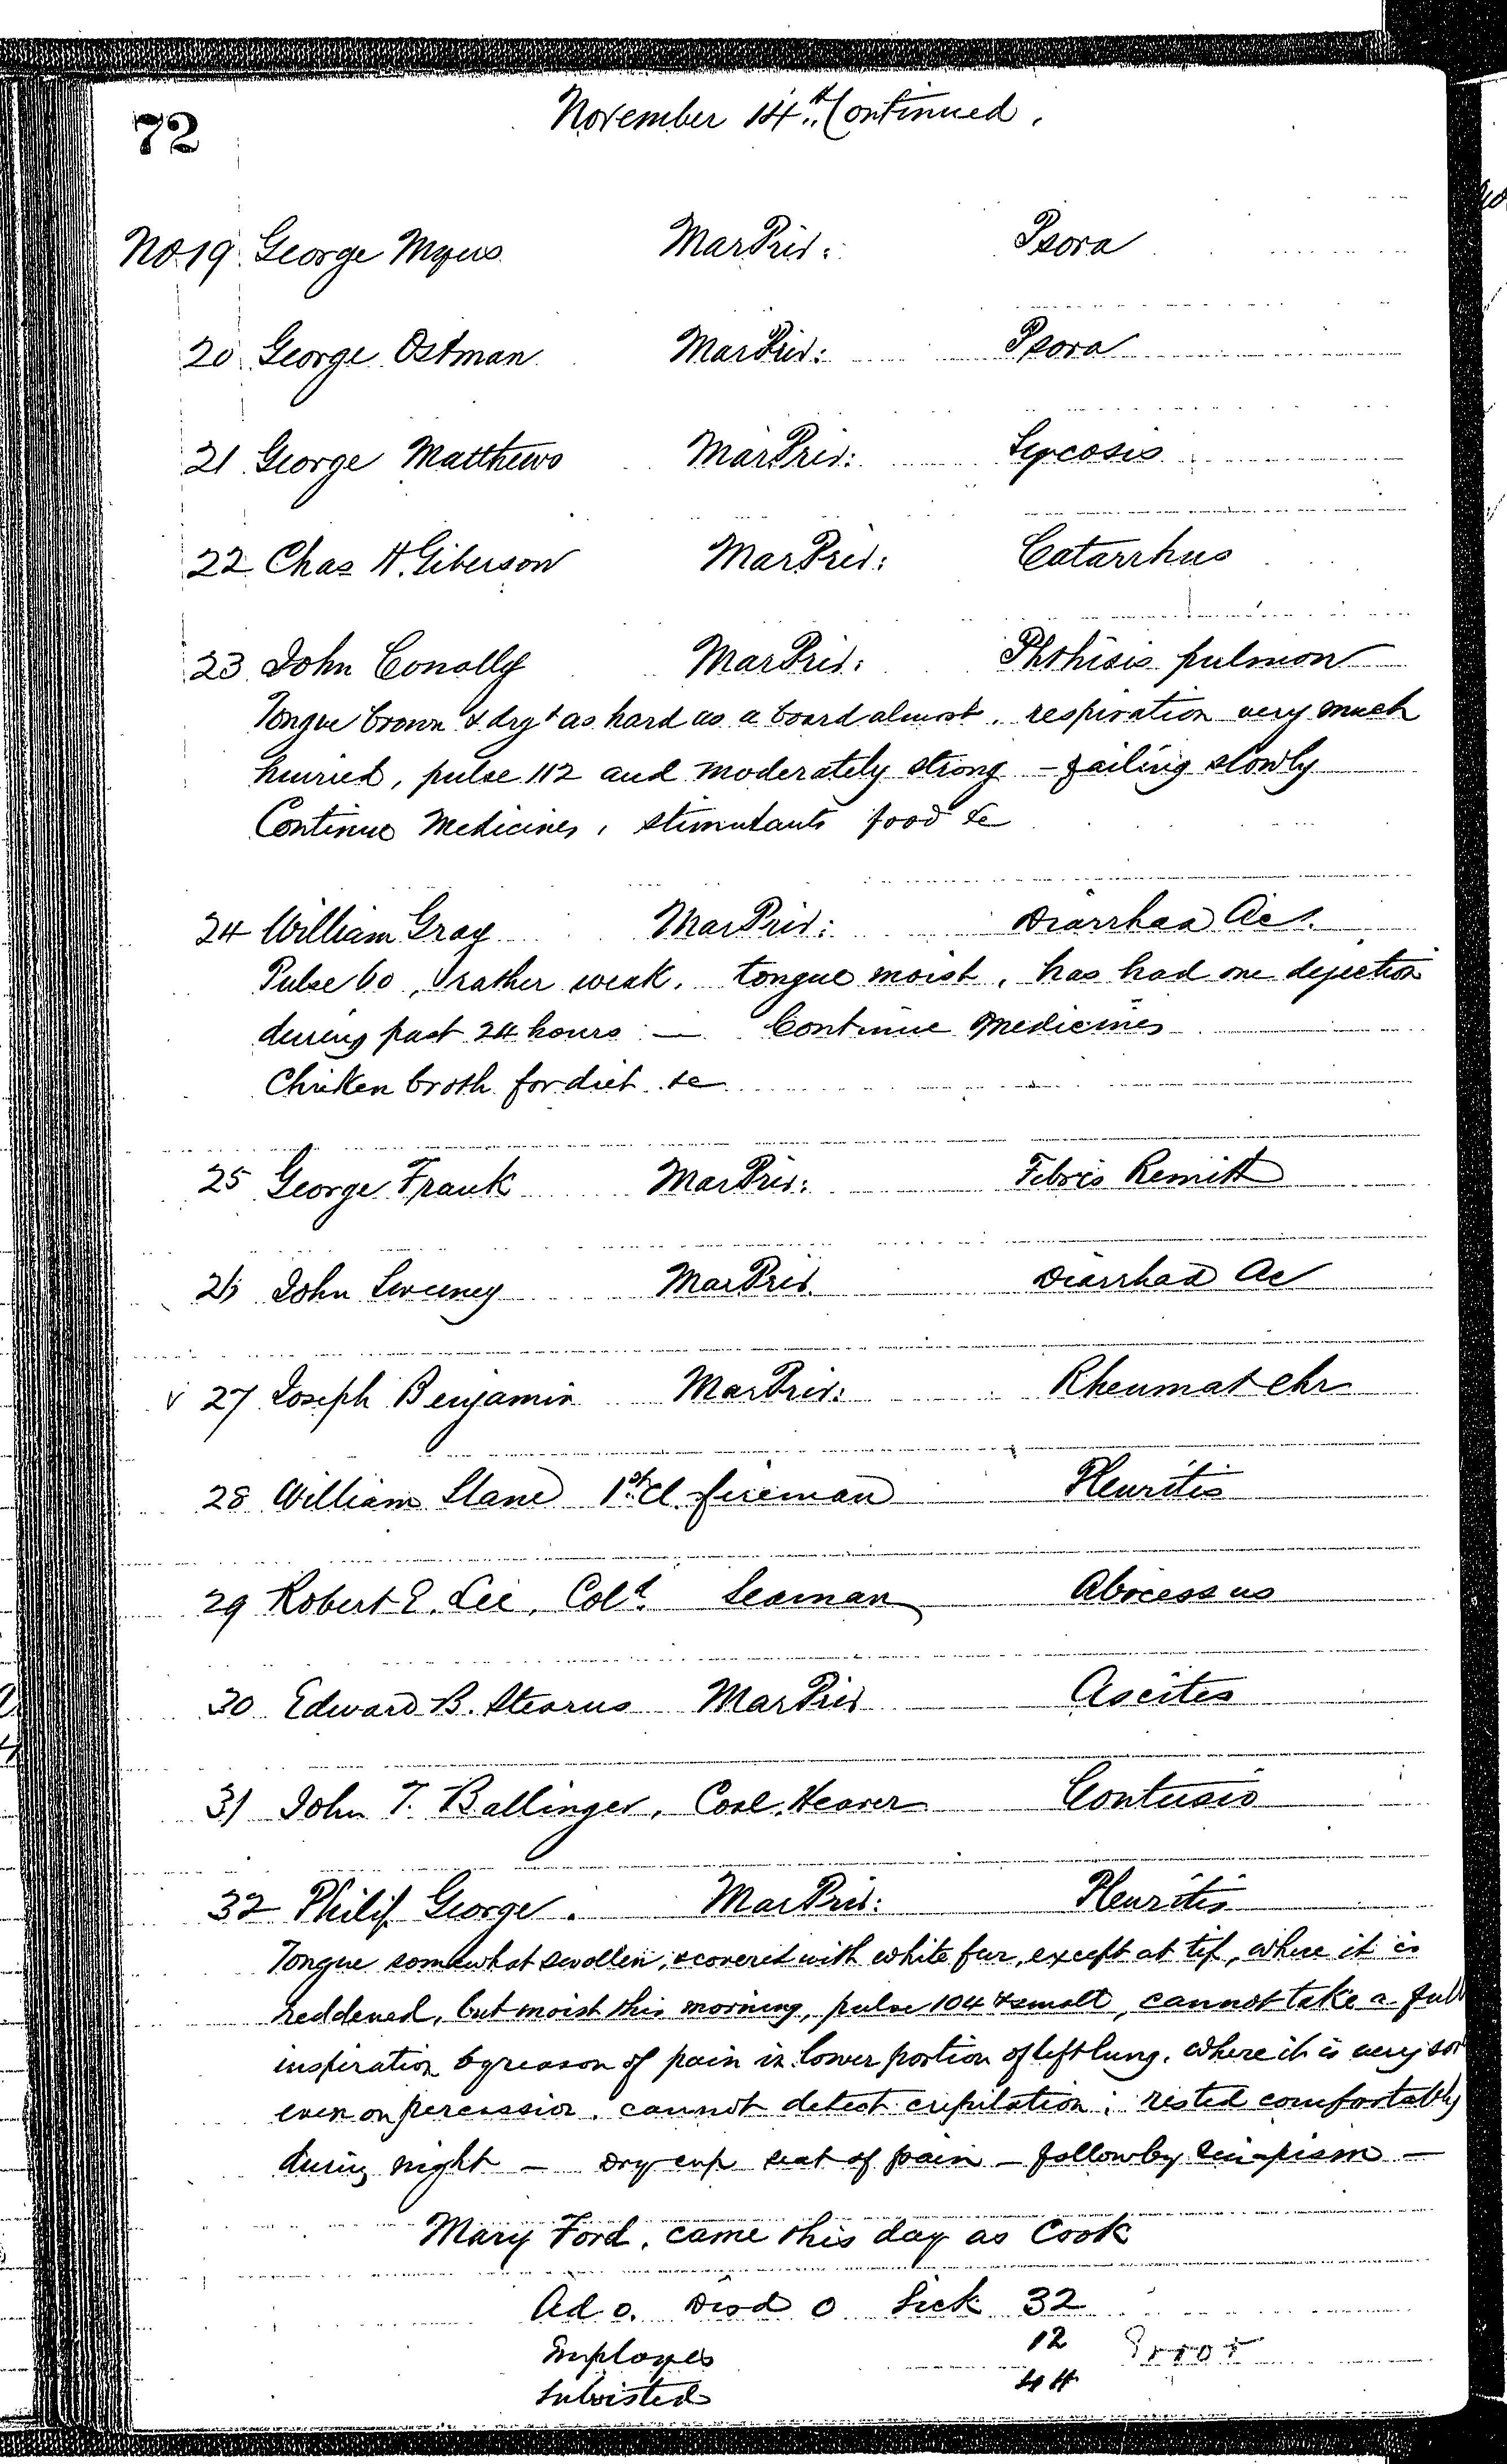 72
November 14th Continued.
No 19 George Myers Mar Priv: Psora
20 George Ostman Mar Priv: Psora
21 George Matthews Mar Priv: Sycosis
22 Chas H. Giberson Mar Priv: Catarrhus
23 John Conolly Mar Priv: Phthisis pulmon
Tongue brown & dry & as hard as a board almost. respiration very much
hurried, pulse 112 and moderately strong - failing slowly
Continue Medicines, stimulants food &c
24 William Gray Mar Priv: Diarrhœa Ac.
Pulse 60, rather weak. tongue moist, has had one dejection
during past 24 hours — Continue Medicines
Chicken broth for diet &c
25 George Frank Mar Priv: Febris Remitt
26 John Sweeney Mar Priv. Diarrhœa Ac
27 Joseph Benjamin Mar Priv: Rheumat chr
28 William Slane 1st Cl. fireman Pleuritis
29 Robert E. Lee, Cold. Seaman Abscessus
30 Edward B. Stearns Mar Priv Ascites
31 John T. Ballinger, Coal Heaver Contusio
32 Philip George. Mar Priv: Pleuritis
Tongue somewhat swollen, & covered with white fur, except at tip, where it is
reddened, but moist this morning, pulse 104 & small, cannot take a full
inspiration by reason of pain in lower portion of left lung, where it is very sor
even on percussion. cannot detect crepitation; rested comfortably
during night — Dry cup seat of pain — follow by sinapism —
Mary Ford, came this day as Cook
Ad 0. Disd 0 Sick 32
Employes 12 Error
Subsisted 44